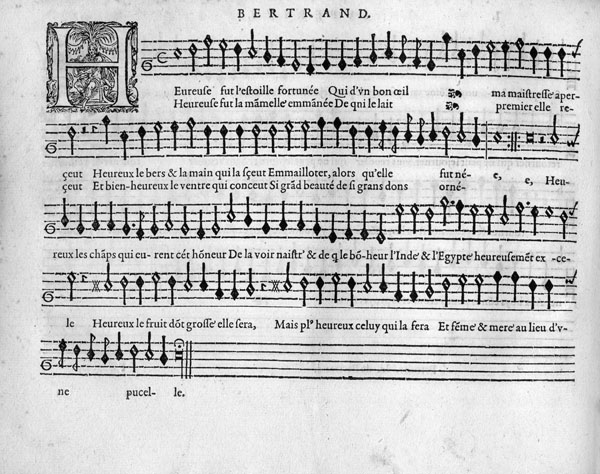 BERTRAND.
HEureuse fut l'estoille fortunée Qui d'vn bon œil ma maistresse aper-
Heureuse fut la māmelle emmānée De qni le lait premier elle re-
çeut Heureux le bers & la main qui la sçeut Emmailloter, alors qu'elle fut né- e, e, Heu-
çeut Et bien-heureux le ventre qui conceut Si grād beauté de si grans dons orné-
reux les chāps qui eu- rent cét hōneur De la voir naist' & de q̃ le bō-heur l'Inde & l'Egypte heureusemēt ex -ce-
le Heureux le fruit dōt grosse elle sera, Mais plº heureux celuy qui la fera Et fēme & mere au lieu d'v-
ne pucel- le.